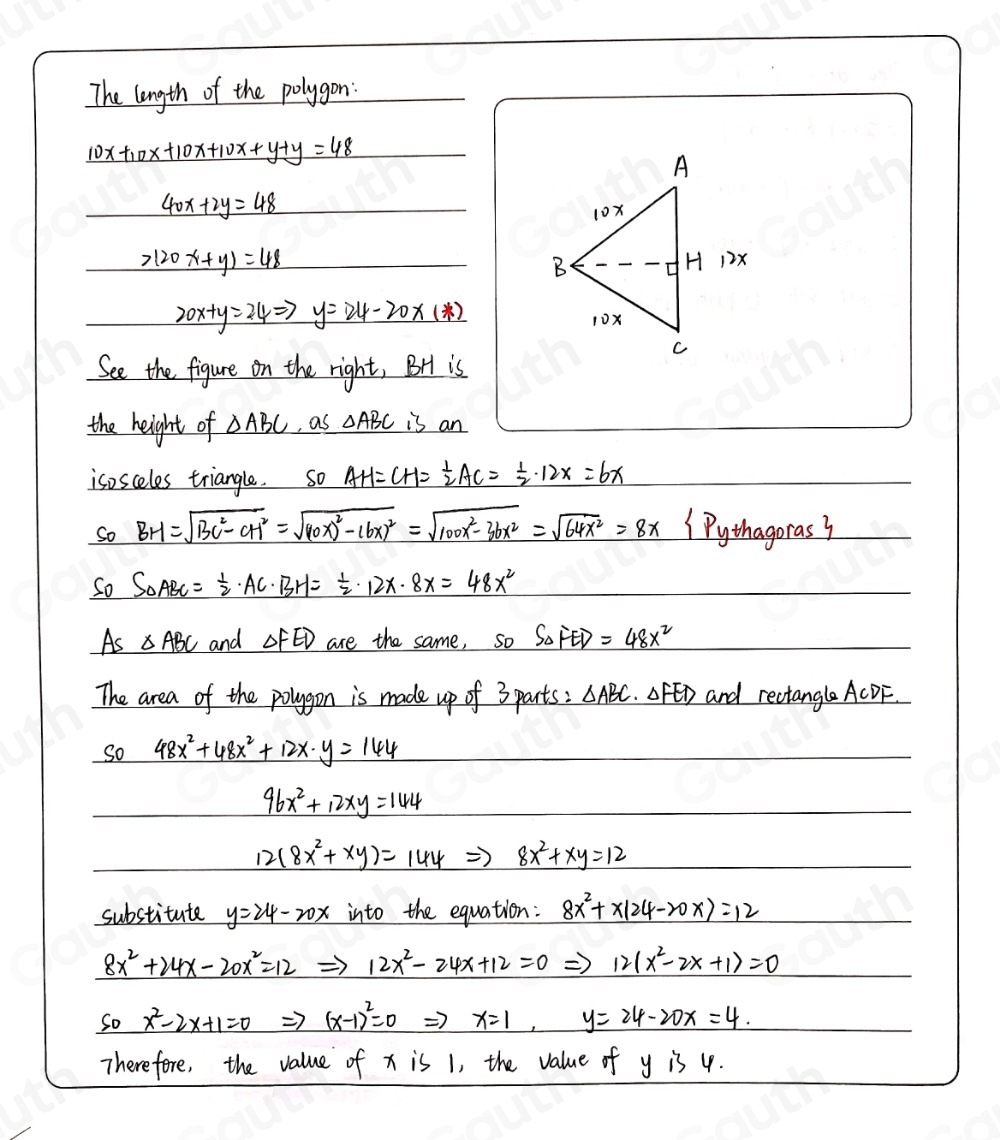 The length of the polygon:
10x+10x+10x+10x+y+y=48
40x+2y=48
2(20x+y)=48
20x+y=24⇒ y=24-20x (*)
See the figure on the right, BH is
the height of △ABC, as △ABC is an
isosceles triangle. so AH=CH=½AC=½·12x=6x
so BH=√(BC²-CH²)=√((10x)²-(6x)²)=√(100x²-36x²)=√(64x²)=8x {Pythagoras}
so S△ABC=½·AC·BH=½·12x·8x=48x²
As △ABC and △FED are the same, so S△FED=48x²
The area of the polygon is made up of 3 parts: △ABC. △FED and rectangle ACDF.
so 48x²+48x²+12x·y=144
96x²+12xy=144
12(8x²+xy)=144 ⇒ 8x²+xy=12
substitute y=24-20x into the equation: 8x²+x(24-20x)=12
8x²+24x-20x²=12 ⇒ 12x²-24x+12=0 ⇒ 12(x²-2x+1)=0
so x²-2x+1=0 ⇒ (x-1)²=0 ⇒ x=1, y=24-20x=4.
Therefore, the value of x is 1, the value of y is 4.
A
10x
B
H 12x
10x
C
Gauth